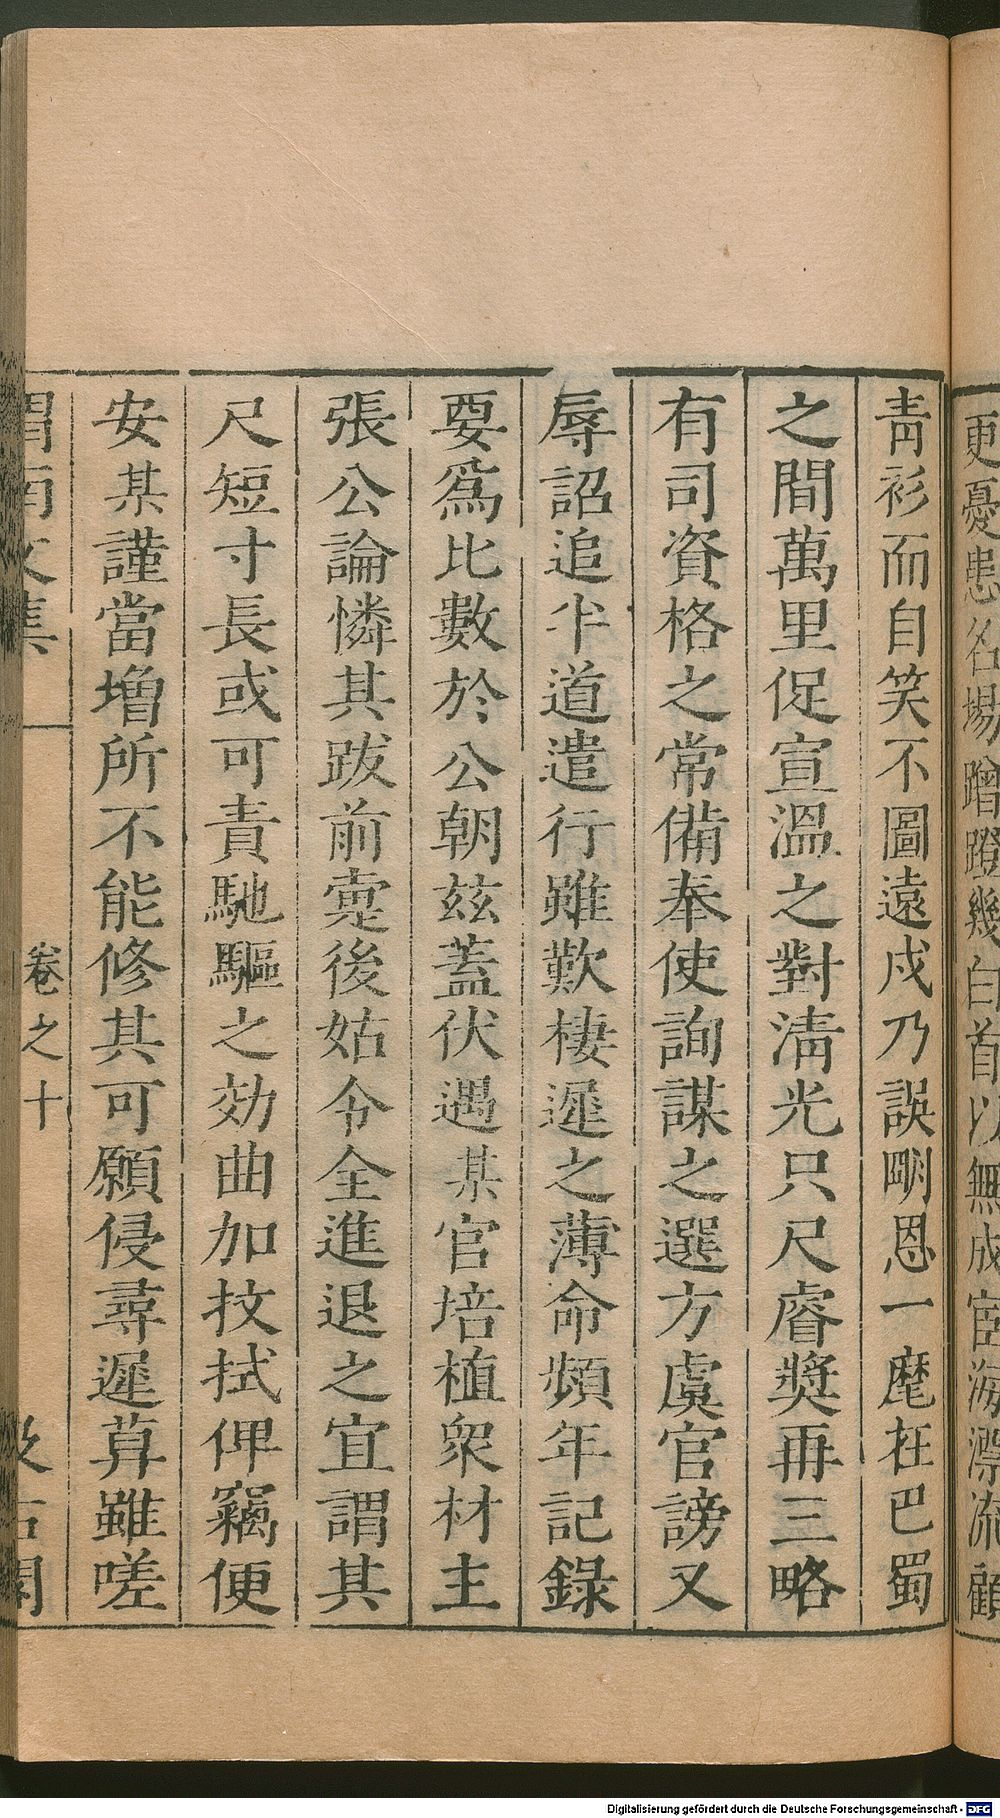 更憂患名場蹭蹬幾白首以無成宦海漂流顧
靑衫而自笑不圖遠戍乃誤明恩一麾在巴蜀
之間萬里促宣溫之對淸光只尺睿奬再三略
有司資格之常備奉使詢謀之選方虞官謗又
辱詔追半道遣行雖歎棲遲之薄命頻年記錄
要爲比數於公朝兹蓋伏遇某官培植衆材主
張公論憐其跋前疐後姑令全進退之宜謂其
尺短寸長或可責馳驅之効曲加抆拭俾竊便
安某謹當增所不能修其可願侵尋遲暮雖嗟
渭南文集
卷之十
汲古閣
Digitalisierung gefördert durch die Deutsche Forschungsgemeinschaft - DFG